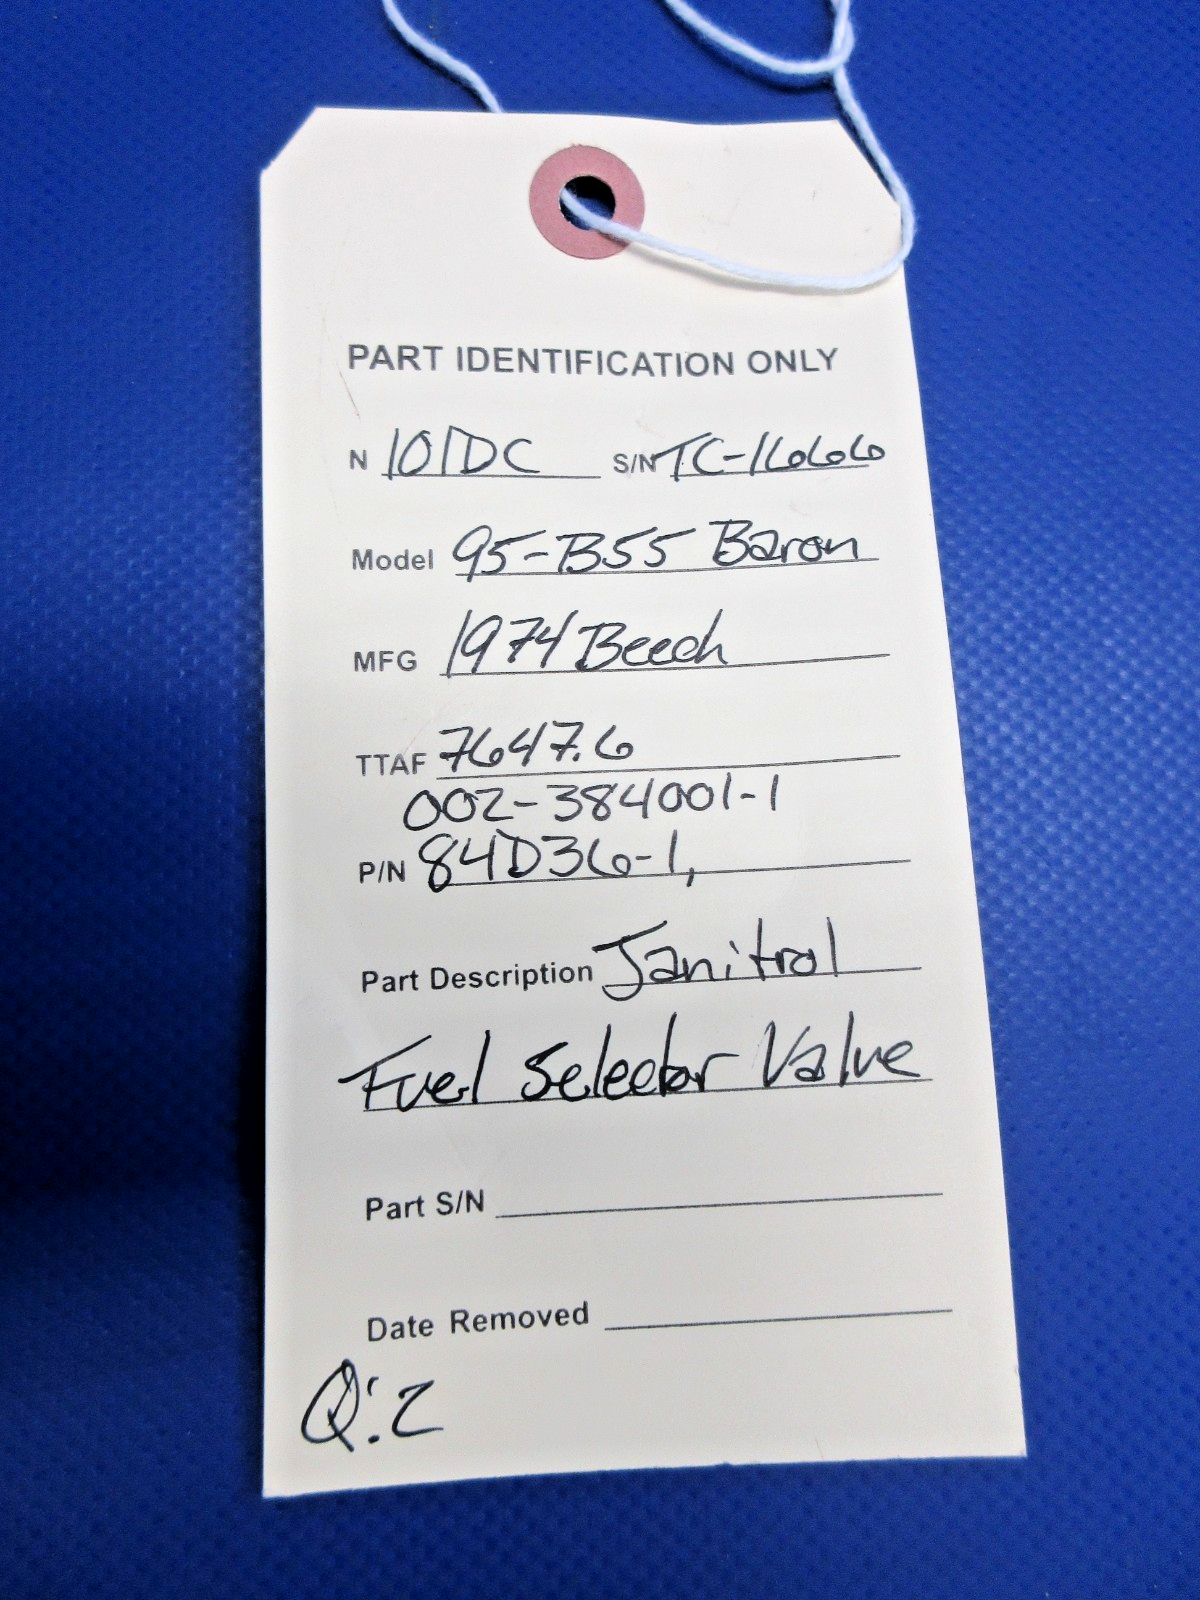 PART IDENTIFICATION ONLY
N 101DC S/N TC-1666
Model 95-B55 Baron
MFG 1974 Beech
TTAF 7647.6
002-384001-1
P/N 84D36-1,
Part Description Janitrol
Fuel Selector Valve
Part S/N
Date Removed
Q:2